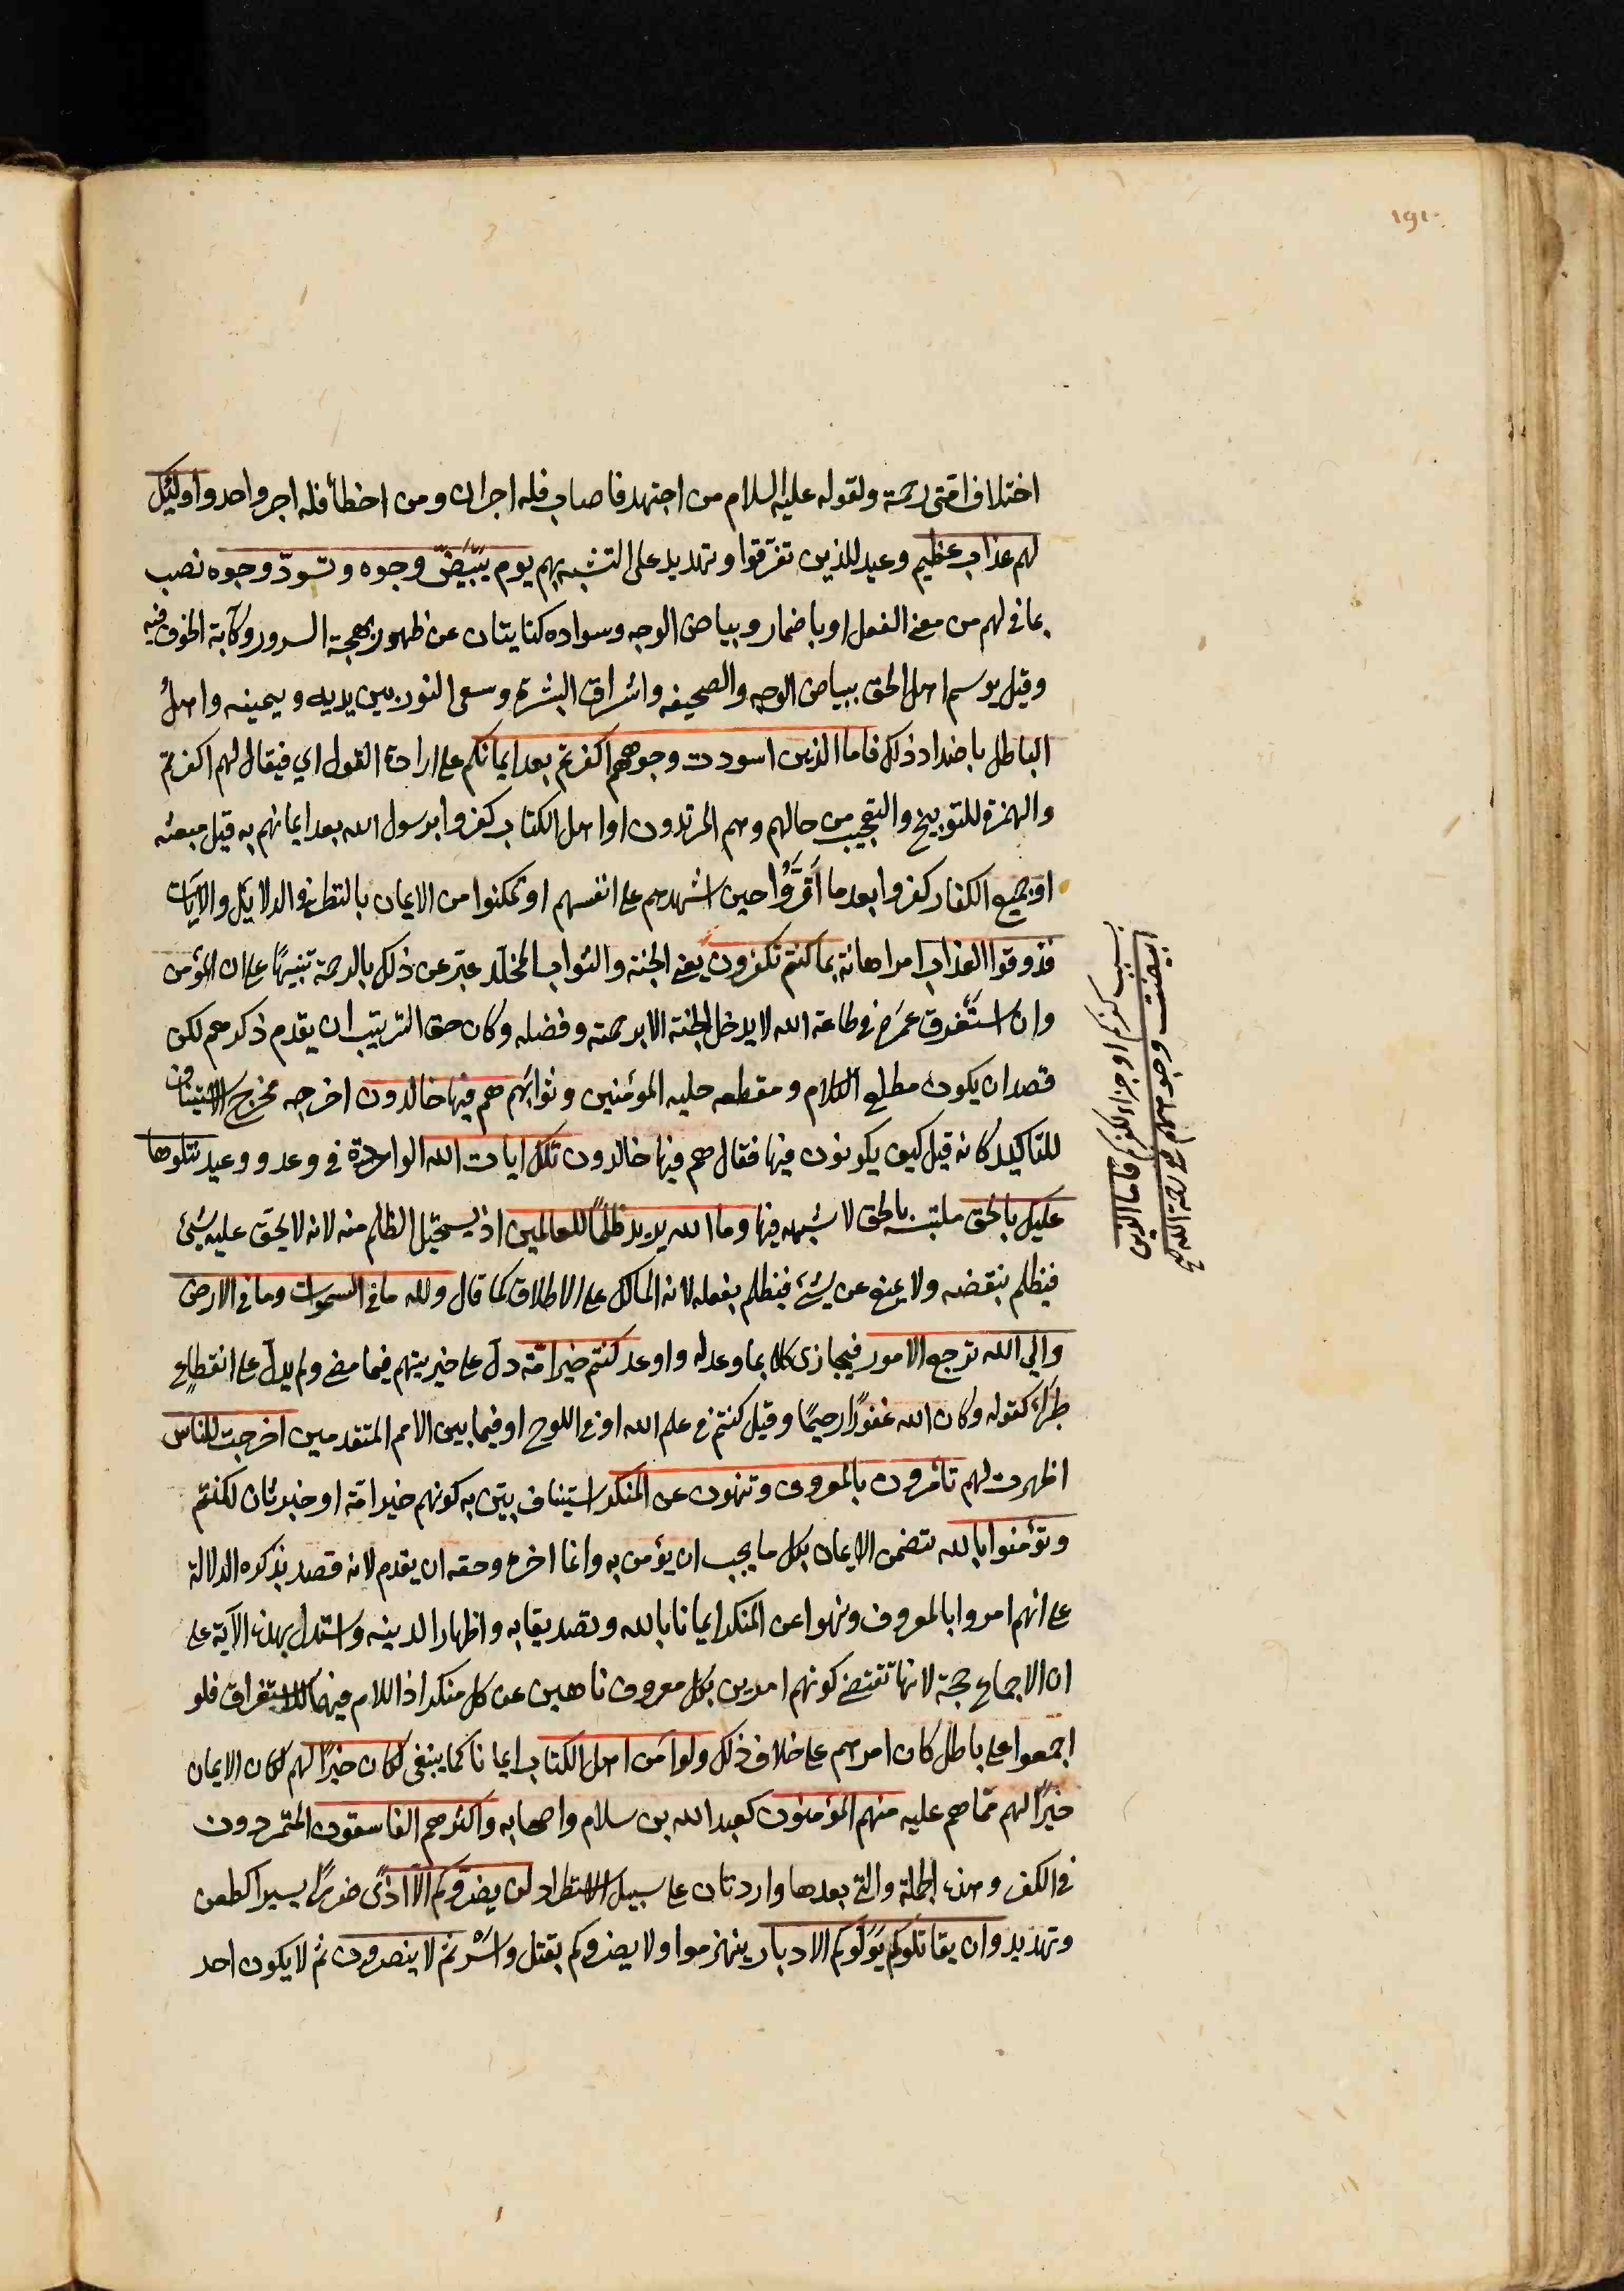 ١٩١
اختلاف امتى رحمة ولقوله عليه السلام من اجتهد فاصاب فله اجران ومن اخطأ فله اجر واحد واولئك
لهم عذاب عظيم وعيد للذين تفرّقوا وتهديد على التشبه بهم يوم تبيَضّ وجوه وتسودّ وجوه نصب
بما فى لهم من معنى الفعل او باضمار وبياض الوجه وسواده كنايتان عن ظهور بهجة السرور وكآبة الخوف فيه
وقيل يوسم اهل الحق ببياض الوجه والصحيفه واشراق البشرة وسعى النور بين يديه ويمينه واهل
الباطل باضداد ذلك فاما الذين اسودت وجوههم اكفرتم بعد ايمانكم على ارادة القول اي فيقال لهم اكفرتم
والهمزة للتوبيخ والتعجيب من حالهم وهم المرتدون او اهل الكتاب كفروا برسول الله بعد ايمانهم به قبل مبعثه
او جميع الكفار كفروا بعد ما أَقَرُّوا حين اشهدهم على انفسهم او تمكنوا من الايمان بالنظر فى الدلايل والآيات
فذوقوا العذاب امر اهانة بما كنتم تكفرون يعنى الجنة والثواب المخلّد عبّر عن ذلك بالرحمة تنبيهًا على ان المؤمن
وان استَغرق عمرَه فى طاعة الله لا يدخل الجنة الا برحمته وفضله وكان حق الترتيب ان يقدم ذكرهم لكن
قصد ان يكون مطلع الكلام ومقطعه حليه المؤمنين وثوابَهم هم فيها خالدون اخرجه مخرج الاستيناف
للتاكيد كانه قيل كيف يكونون فيها فقال هم فيها خالدون تلك ايات الله الواردة فى وعد ووعيد نتلوها
عليك بالحق ملتبسه بالحق لا شبهه فيها وما الله يريد ظلمًا للعالمين اذ يستحيل الظلم منه لانه لا يحق عليه شئ
فيظلم بنقضه ولا يمنع عن شئ فيظلم بفعله لانه المالك على الاطلاق كما قال ولله ما فى السموات وما فى الارض
والى الله ترجع الامور فيجازى كلا بما وعد له واوعد كنتم خير امّة دل على خيريتهم فيما مضى ولم يدل على انقطاع
طرَأَ كقوله وكان الله غفورًا رحيمًا وقيل كنتم فى علم الله او فى اللوح او فيما بين الامم المتقدمين اخرجت للناس
اظهرت لهم تأمرون بالمعروف وتنهون عن المنكر استيناف بيّن به كونهم خير امّة او خبر ثان لكنتم
وتؤمنوا بالله تتضمن الايمان بكل ما يجب ان يؤمن به وانما اخره وحقه ان يقدم لانه قصد بذكره الدلالة
على انهم امروا بالمعروف ونهوا عن المنكر ايمانا بالله وتصديقا به واظهارا لدينه واستدل بهذه الآية على
ان الاجماع حجة لانها تقتضى كونهم امرين بكل معروف ناهين عن كل منكر اذ اللام فيهما للاستغراق فلو
اجمعوا على باطل كان امرهم على خلاف ذلك ولو آمن اهل الكتاب ايمانا كما ينبغى لكان خيرًا لهم لكان الايمان
خيرًا لهم ممّا هم عليه منهم المؤمنون كعبد الله بن سلام واصحابه واكثرهم الفاسقون المتمردون
فى الكفر وهذه الجملة والتى بعدها واردتان على سبيل الاستطراد لن يضرّوكم الّا اذًى ضررًا يسيرا كطعن
وتهديد وان يقاتلوكم يولّوكم الادبار ينهزموا ولا يضروكم بقتل واسْر ثم لا ينصرون ثم لا يكون احد
بسبب كفركم او جزاء لكفركم واما الذين
ابيضت وجوههم ففى رحمة الله صح